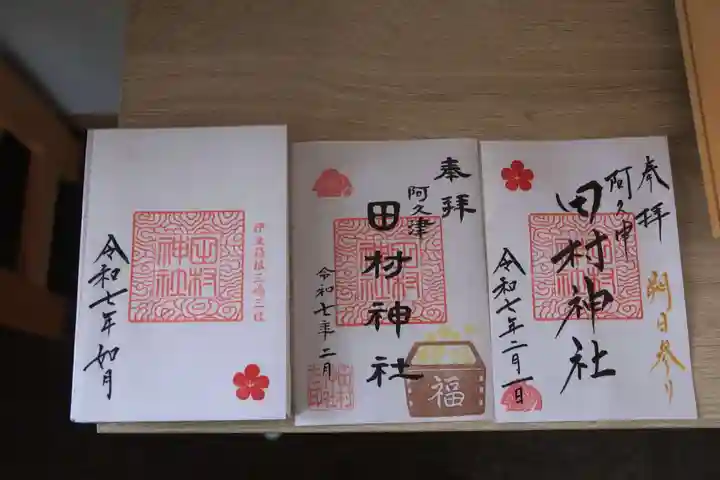 令和七年如月
田村
神社
奉拝
阿久津
田村神社
令和七年二月
田村
神社
福
奉拝
阿久津
田村神社
令和七年二月一日
朔日参り